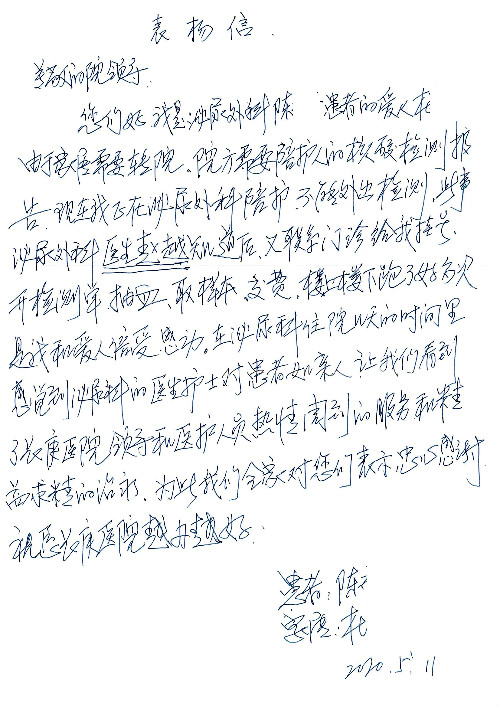 表扬信
尊敬的院领导
您们好 我是泌尿外科陈 患者的爱人杜
由于病情需要转院,院方需要陪护人的核酸检测报
告。现在我正在泌尿外科陪护 不能外出检测,此事
泌尿外科医生赵越知道后,又联系门诊给我挂号、
开检测单 抽血、取样本、交费,楼上楼下跑了好多次
是我和爱人倍受感动。在泌尿科住院 天的时间里
感觉到泌尿科的医生护士对患者如亲人 让我们看到
了长庚医院领导和医护人员热情周到的服务和精
益求精的治疗,为此我们全家对您们表示忠心感谢
祝愿长庚医院越办越好.
患者:陈
家属:杜
2020.5.11